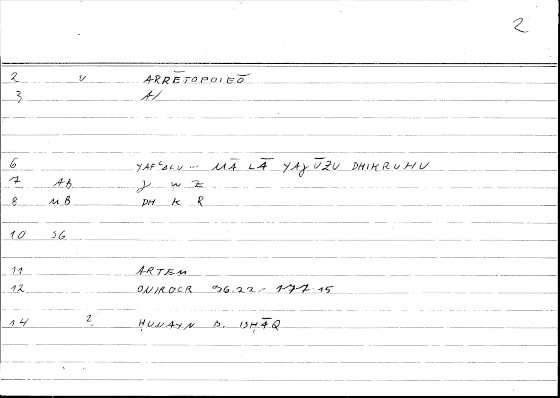 2
2 V ARRĒTOPOIEŌ
3 A/
6 YAFʿALU ... MĀ LĀ YAJŪZU DHIKRUHU
7 AB J W Z
8 MB DH K R
10 SG
11 ARTEM
12 ONIROCR 96.22 - 177.15
14 2. ḤUNAYN B. ISḤĀQ